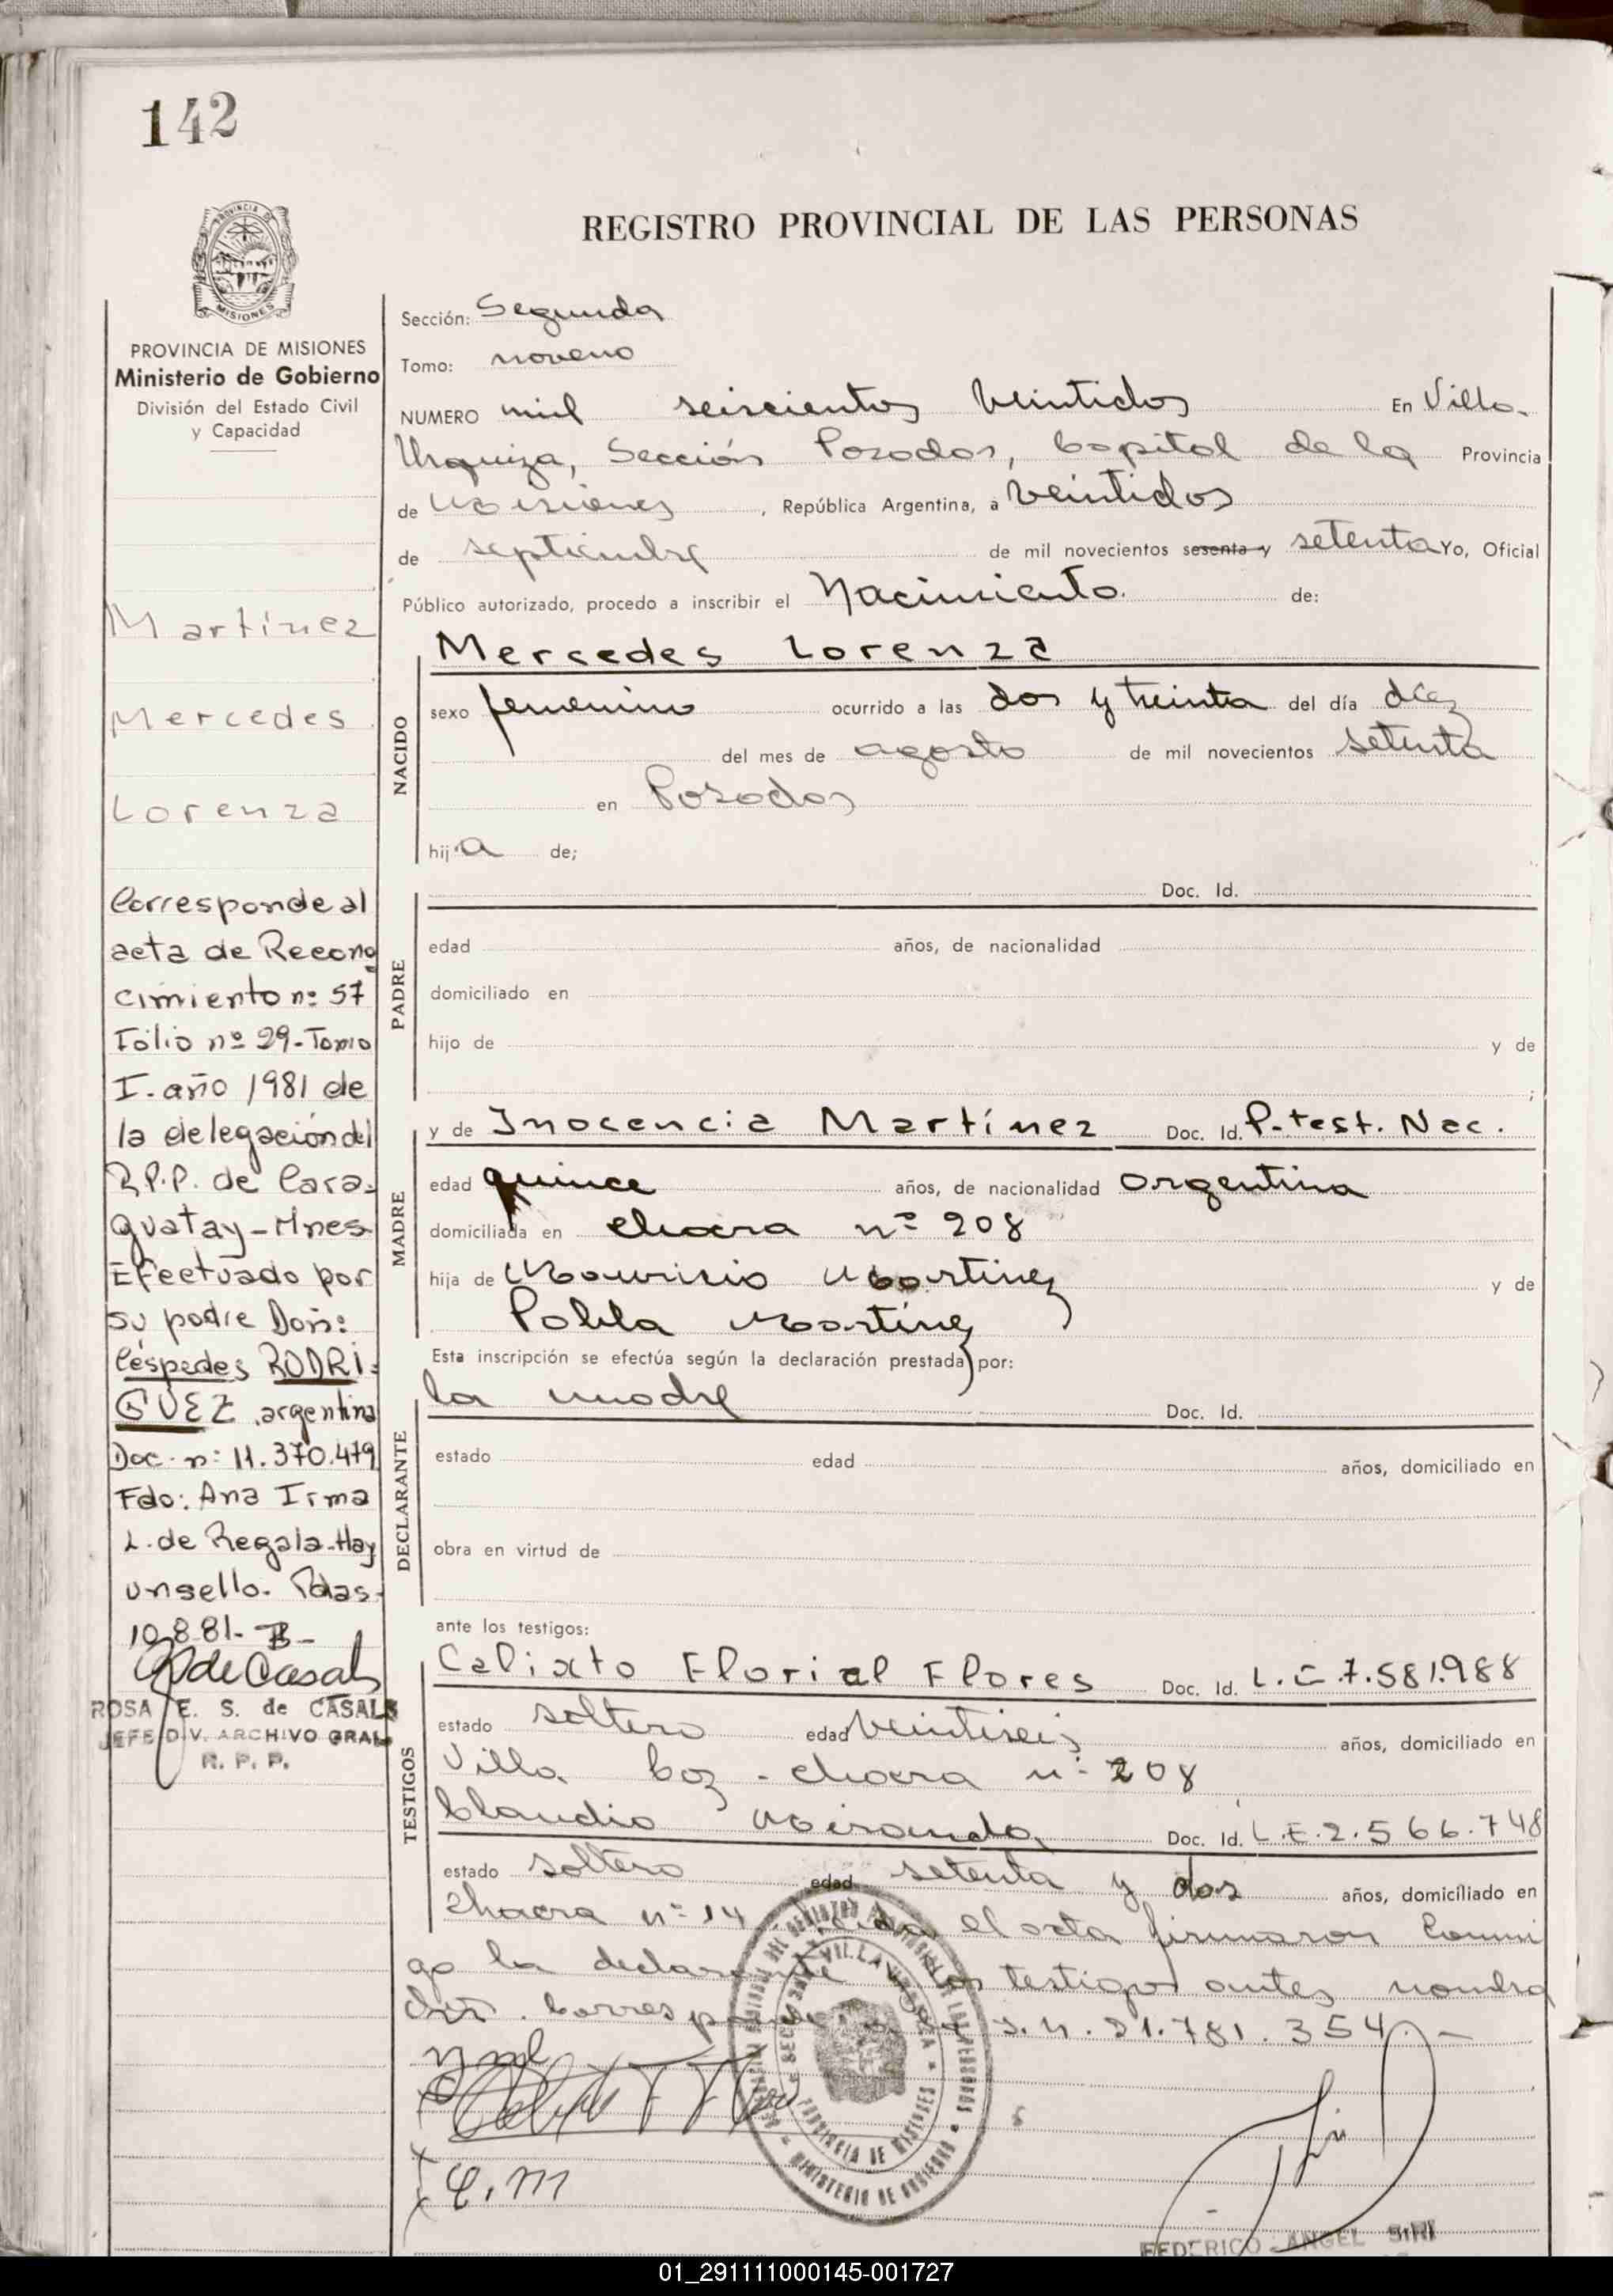 142
REGISTRO PROVINCIAL DE LAS PERSONAS
PROVINCIA DE MISIONES
PROVINCIA DE MISIONES
Ministerio de Gobierno
División del Estado Civil
y Capacidad
Martínez
Mercedes
Lorenza
Corresponde al
acta de Recono
cimiento nº 57
Folio nº 29-Tomo
I-año 1981 de
la delegación del
R.P.P. de Cara-
guatay-Mnes
Efectuado por
su padre Don:
Céspedes RODRI-
GUEZ, argentina
Doc. nº: 11.370.479
Fdo: Ana Irma
L. de Regala-Hay
un sello. Pdas-
10-8-81-
deCasals
ROSA E. S. de CASALS
JEFE DIV. ARCHIVO GRAL
R. P. P.
Sección: Segunda
Tomo: noveno
NUMERO mil seiscientos veintidos En Villa
Urquiza, Sección Posadas, Capital de la Provincia
de Misiones , República Argentina, a veintidos
de septiembre de mil novecientos sesenta y setenta Yo, Oficial
Público autorizado, procedo a inscribir el Nacimiento. de:
Mercedes Lorenza
NACIDO
sexo femenino ocurrido a las dos y treinta del día diez
del mes de agosto de mil novecientos setenta
en Posadas
hija de;
Doc. Id.
PADRE
edad años, de nacionalidad
domiciliado en
hijo de y de
;
MADRE
y de Inocencia Martínez Doc. Id. P-test. Nac.
edad quince años, de nacionalidad argentina
domiciliada en chacra nº 208
hija de Mauricio Martinez y de
Martinez
Esta inscripción se efectúa según la declaración prestada por:
la madre Doc. Id.
DECLARANTE
estado edad años, domiciliado en
obra en virtud de
ante los testigos:
TESTIGOS
Calixto Florial Flores Doc. Id. L.E 7.581.988
estado soltero edad veintiseis años, domiciliado en
Villa Coz - chacra nº 208
Claudio Miranda Doc. Id. L.E. 2.566.748
estado soltero edad setenta y dos años, domiciliado en
chacra nº 14 leida el acta firmaron conmi
go la declarante y los testigos antes nombra
dos. 21.781.354.-
C.M
VILLA URQUIZA
PROVINCIA DE MISIONES
MINISTERIO DE GOBIERNO
FEDERICO ANGEL SIRI
01_291111000145-001727